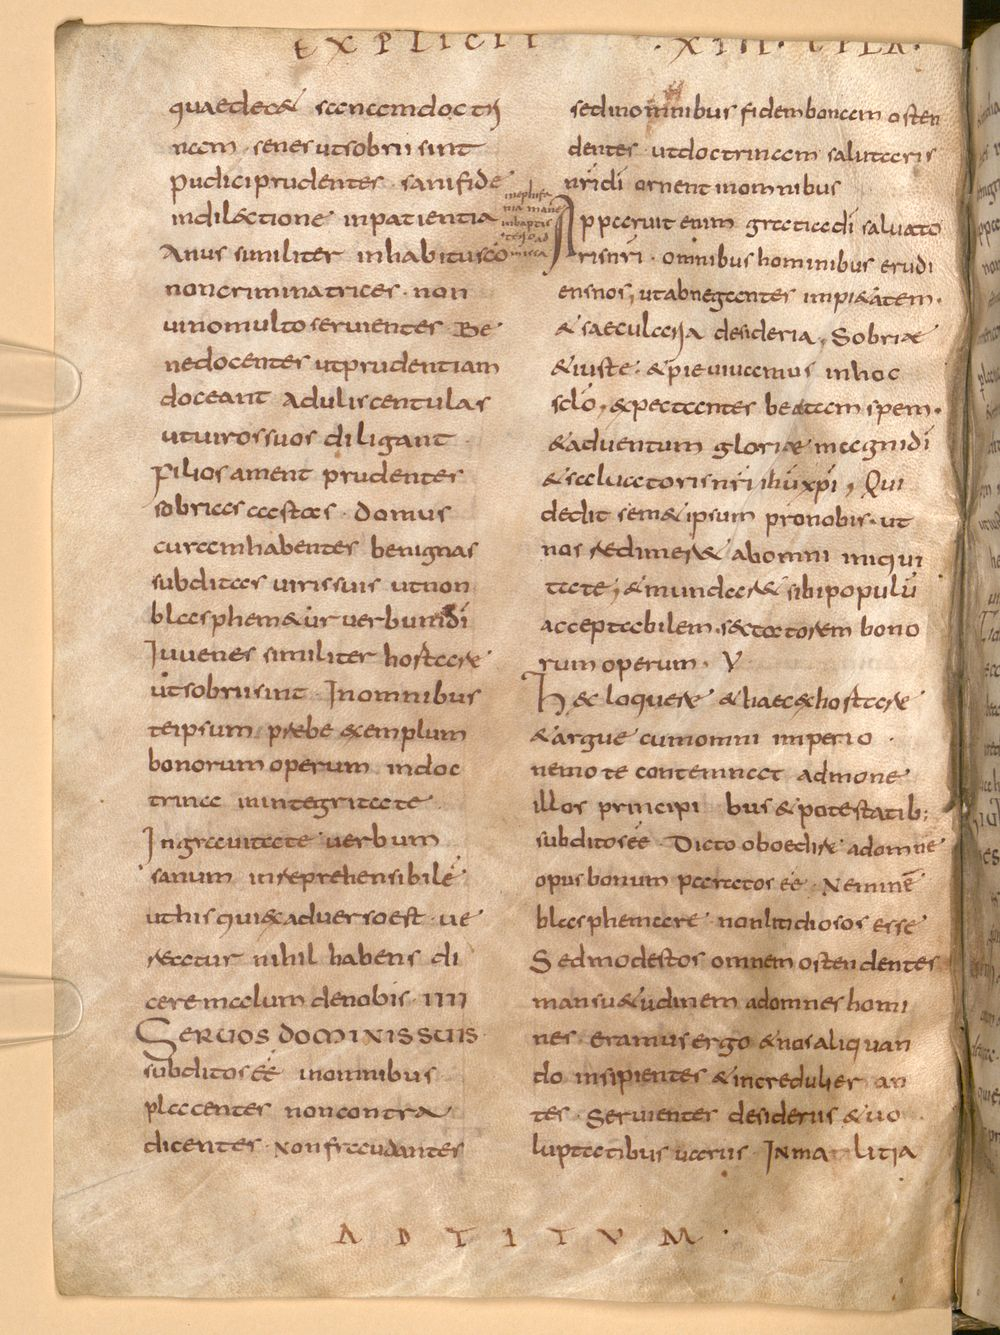 EXPLICIT · XIII · EPLA ·
quaedec& sanamdoctri
nam · senes utsobrii sint
Pudici prudentes · sanifide
indilectione inpatientia
Anus similiter inhabituscō
noncriminatrices · non
uinomultoseruientes Be
nedocentes utprudentiam
doceant Aduliscentulas
utuirossuos diligant
Filios ament prudentes
sobrias castas · Domus
curamhabentes benignas
subditas virissuis utnon
blasphem&ur verbumdī
Iuuenes similiter hortare
utsobriisint · Inomnibus
teipsum prebe exemplum
bonorum operum indoc
trina inintegritate
Ingrauitate uerbum
sanum inreprehensibile
uthisquiexaduersoest ue
reatur nihil habens di
cere malum denobis · IIII
SERUOS DOMINIS SUIS
subditos eē inomnibus
placentes noncontra
dicentes · Nonfraudantes
sedinomnibus fidembonam osten
dentes · utdoctrinam salutaris
nr̄idī ornent inomnibus
inephifa
nia mane
inbaptis
terio ad
missa
Apparuit enim gratiadī saluato
risnr̄i · omnibus hominibus erudi
ensnos, utabnegantes impi&atem ·
& saecularia desideria, Sobriæ
&iuste · &pieuiuamus inhoc
sclō, expectantes beatam spem ·
&aduentum gloriæ magnidī
&saluatorisnr̄i ihū xpī, Qui
dedit sem&ipsum pronobis · ut
nos redimer& abomni iniqui
tate; &mundar& sibipopulū
acceptabilem, sectatorem bono
rum operum · V
Hec loquere &haec exhortare
&argue cumomni imperio ·
nemo te contemnat admone
illos principi bus &potestatib;
subditoseē · Dicto oboedire adomne
opus bonum paratos eē · Neminē
blasphemare · nonlitidiosos esse
Sedmodestos omnem ostendentes
mansu&udinem adomnes homi
nes · eramus ergo &nosaliquan
do insipientes &increduli er an
tes · Seruientes desideriis &uo
luptatibus uariis · Inmalitia
A D T I T U M ·